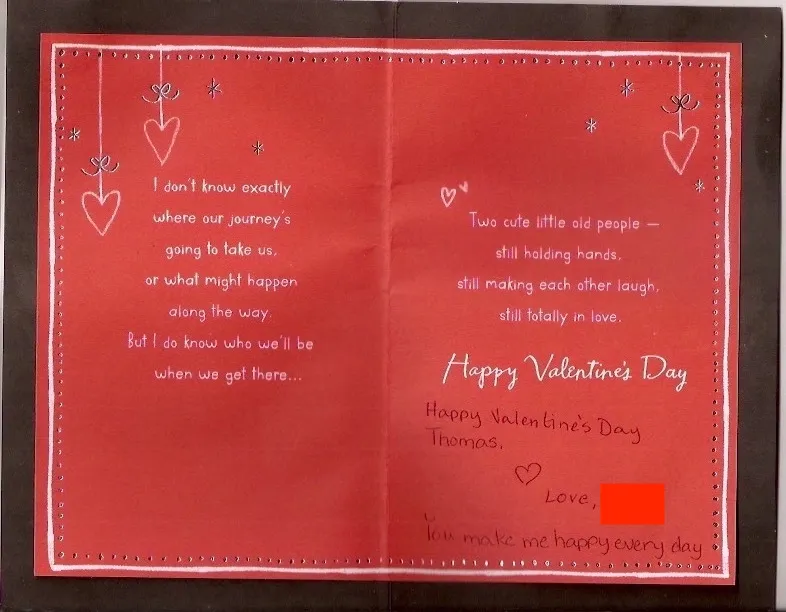 I don't know exactly
where our journey's
going to take us,
or what might happen
along the way.
But I do know who we'll be
when we get there...
Two cute little old people —
still holding hands,
still making each other laugh,
still totally in love.
Happy Valentine's Day
Happy Valentine's Day
Thomas,
Love,
You make me happy every day